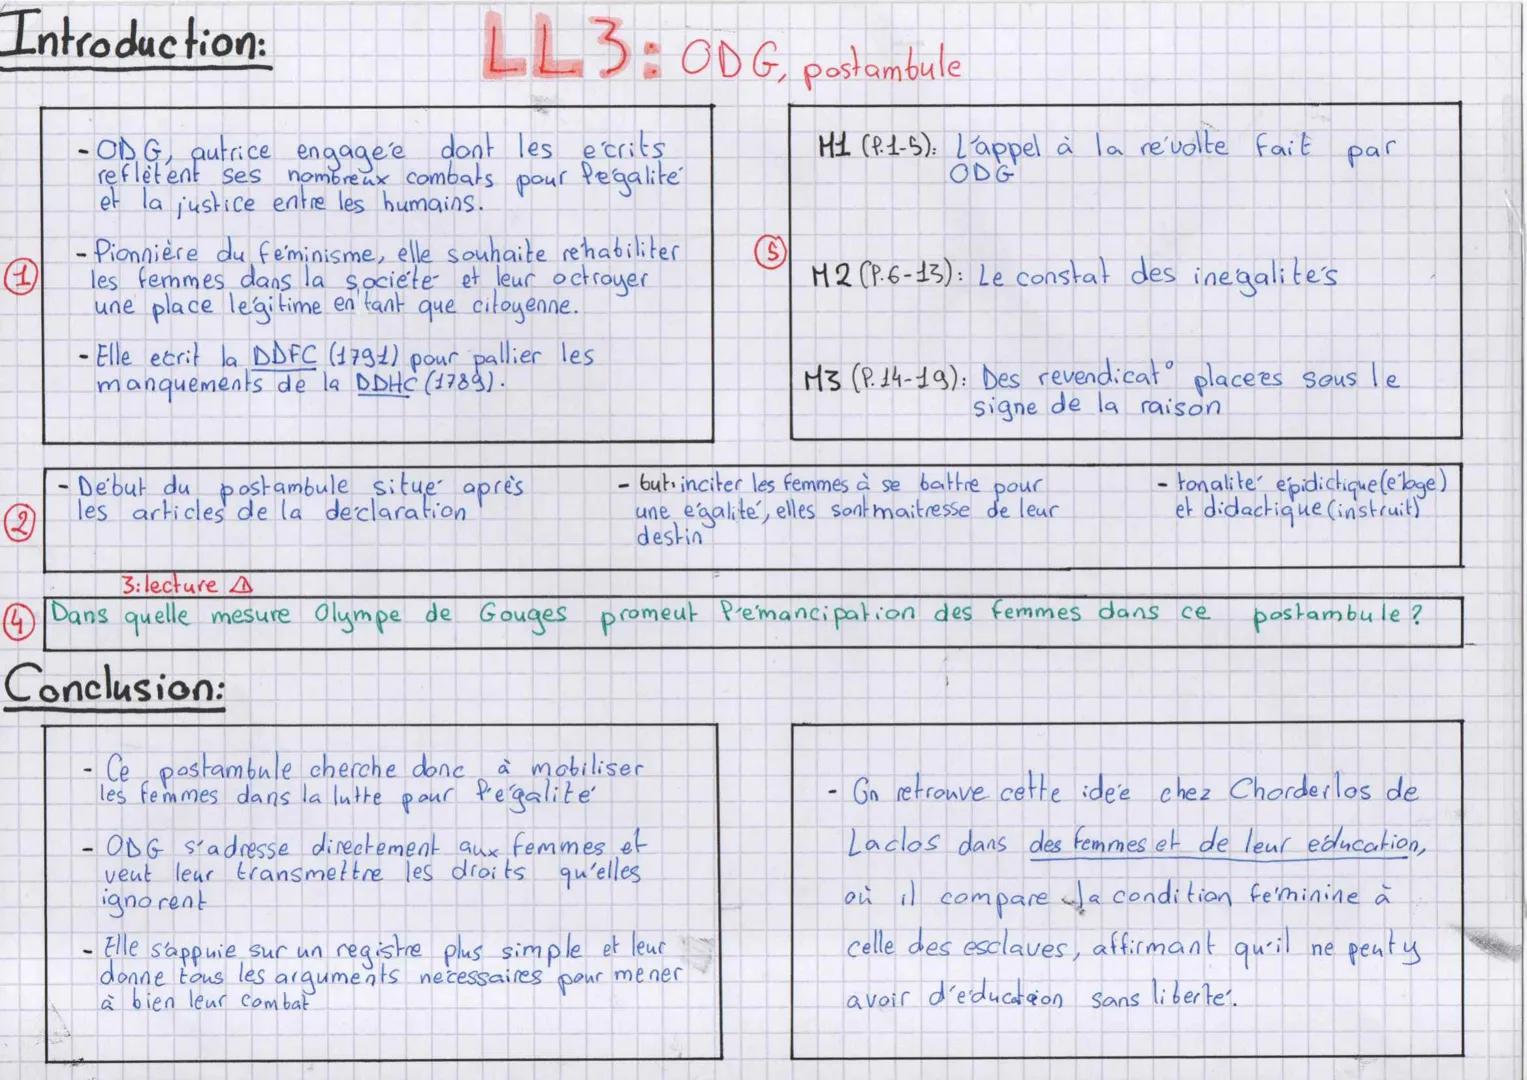 Introduction:
LL3: ODG, postambule
- ODG, autrice engagée dont les écrits
reflètent ses nombreux combats pour l'égalité
et la justice entre les humains.
- Pionnière du féminisme, elle souhaite réhabiliter
les femmes dans la société et leur octroyer
une place légitime en tant que citoyenne.
- Elle écrit la DDFC (1791) pour pallier les
manquements de la DDHC (1789).
1
M1 (P.1-5): L'appel à la révolte fait par
ODG
5
M2 (P.6-13): Le constat des inégalités
M3 (P.14-19): Des revendicat° placées sous le
signe de la raison
2
- Début du postambule situé après
les articles de la déclaration
- but: inciter les femmes à se battre pour
une égalité, elles sont maitresse de leur
destin
- tonalité épidictique (éloge)
et didactique (instruit)
3: lecture ⚠
4
Dans quelle mesure Olympe de Gouges promeut l'émancipation des femmes dans ce postambule ?
Conclusion:
- Ce postambule cherche donc à mobiliser
les femmes dans la lutte pour l'égalité
- ODG s'adresse directement aux femmes et
veut leur transmettre les droits qu'elles
ignorent
- Elle s'appuie sur un registre plus simple et leur
donne tous les arguments nécessaires pour mener
à bien leur combat
- On retrouve cette idée chez Chorderlos de
Laclos dans des femmes et de leur éducation,
où il compare la condition féminine à
celle des esclaves, affirmant qu'il ne peut y
avoir d'éducation sans liberté.